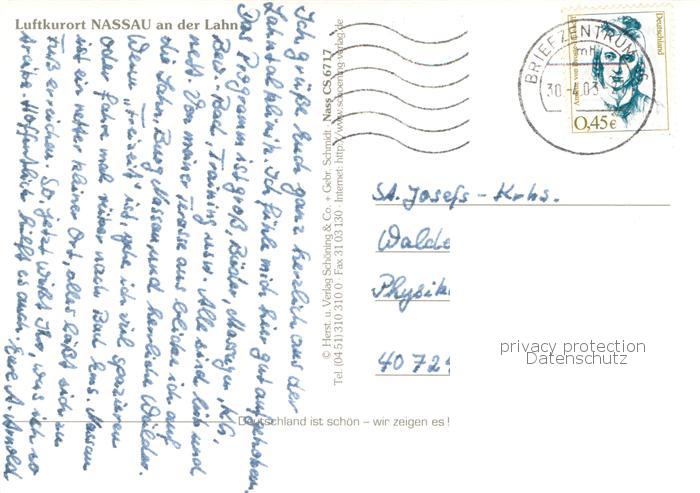 Luftkurort NASSAU an der Lahn
Ich grüße Euch ganz herzlich aus der
Lahntalklinik. Ich fühle mich hier gut aufgehoben.
Das Programm ist groß, Bäder, Massagen, KG,
Bew.-Bad, Training usw. Alle sind lieb und
nett. Von meiner Terasse aus blicke ich auf
die Lahn, Burg Nassau und herrliche Wälder.
Wenn "Freizeit" ist, gehe ich viel spazieren
oder fahre mal rüber nach Bad Ems. Nassau
ist ein netter kleiner Ort, alles läßt sich zu
Fuß erreichen. So, jetzt wißt Ihr, was ich so
treibe. Hoffentlich hilft es auch. Eure A. Arnold
© Herst. u. Verlag Schöning & Co. + Gebr. Schmidt · Nass CS 6717
Tel. (04 51) 310 310 0 · Fax 31 03 130 · Internet: http://www.schoening-verlag.de
Deutschland ist schön – wir zeigen es!
Deutschland
0,45€
BRIEFZENTRUM
mH
30.-4.03
St. Josefs-Krhs.
Walde
Physik
4072
privacy protection
Datenschutz